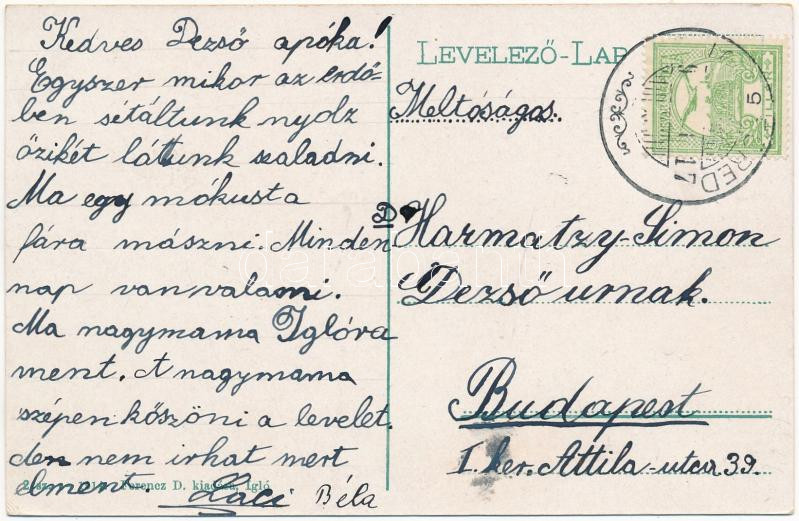 Kedves Dezső apóka!
Egyszer mikor az erdő-
ben sétáltunk nyolz
őzikét láttunk szaladni.
Ma egy mókust a
fára mászni. Minden
nap van valami.
Ma nagymama Iglóra
ment. A nagymama
szépen köszöni a levelet.
de nem irhat mert
elment. Laci Béla
Ferencz D. kiadása, Igló
LEVELEZŐ-LAP
Meltóságos.
D
Harmatzy-Simon
Dezső urnak.
Budapest
I. ker. Attila-utca 39.